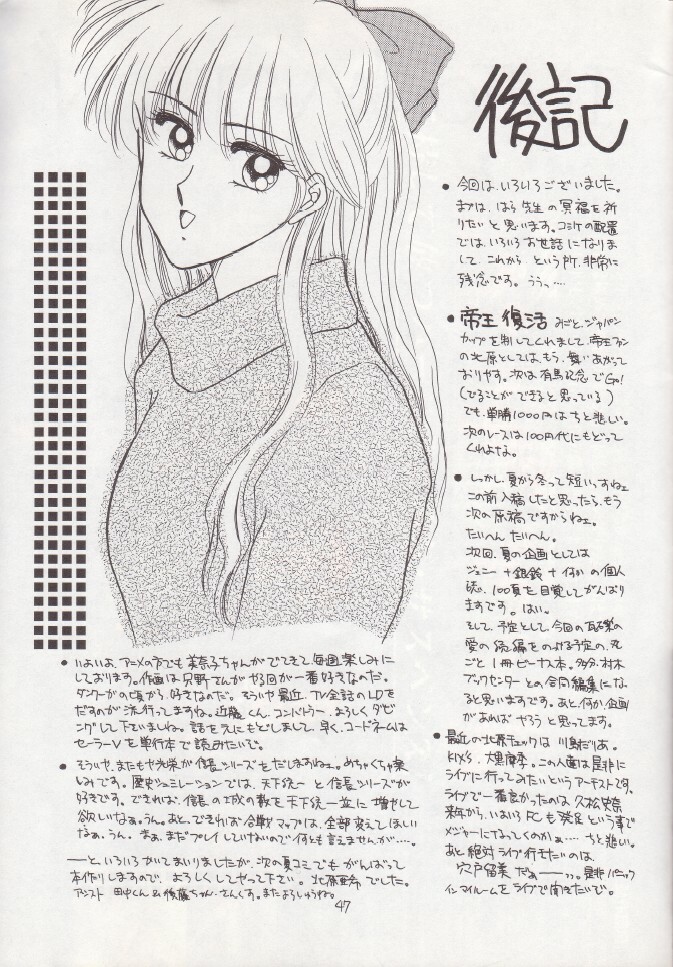 後記
● 今回は、いろいろございました。
まずは、はら先生の冥福を祈り
たいと思います。コミケの配置
では、いろいろお世話になりま
して、これから、という所、非常に
残念です。うぅっ‥‥
● 帝王復活 みごと、ジャパン
カップを制してくれまして、帝王ファン
の北原としては、もう、舞いあがって
おりやす。次は有馬記念でGo!
(ひることができると思っている)
でも、単勝1000円はちと悲しい。
次のレースは100円代にもどって
くれよな。
● しかし、夏から冬って短いっすねェ。
この前入稿したと思ったら、もう
次の原稿ですからねェ。
たいへん たいへん。
次回、夏の企画としては
ジェニー + 銀鈴 + 何か の個人
誌、100頁を目覚してがんばり
ますです。はい。
そして、予定として、今回の
愛の続編をのっける予定の、丸
ごと1冊ビーナス本。多分、村木
ブックセンターとの合同編集にな
ると思いますです。あと、何か、企画
があれば やろうと思ってます。
● 最近の北原チェックは 川島だりあ。
KIX'S 大黒摩季。この人達は是非に
ライブに行ってみたいというアーチストです。
ライブで一番良かったのは 久松史奈
来年から、いよいよFCも発足という事で
メジャーになってくのかぁ‥‥ちと悲しい。
あと絶対ライブ行きたいのは、
宍戸留美 だぁ──ッ。是非パニック
インマイルームをライブで聞きたいで。
● いよいよ、アニメの方でも 美奈子ちゃんがでてきて、毎週楽しみに
しております。作画は只野さんがやる回が一番好きなのだ。
ダンクーガの頃から、好きなのだ。そういや最近、TV全話のLDを
だすのが流行ってますね。近藤くん、コンバトラー、よろしくダビ
ングして下さいましね。話をえにもどしまして、早く、コードネームは
セーラーVを単行本で読みたいぞ。
● そういや、またもや光栄が信長シリーズをだしますねェ。めちゃくちゃ楽
しみです。歴史シュミレーションでは、天下統一と信長シリーズが
好きです。できれば、信長の城の数を天下統一並に増やして
欲しいなぁ。うん。あと、できれば合戦マップは、全部変えてほしい
なぁ、うん。まぁ、まだプレイしていないので何とも言えませんが‥‥。
──と、いろいろかいてまいりましたが、次の夏コミでもがんばって
本作りしますので、よろしくしてやって下さい。北原亜希でした。
アシスト 田中くん & 後藤ちゃん、さんくす。またよろしゅうね。
47